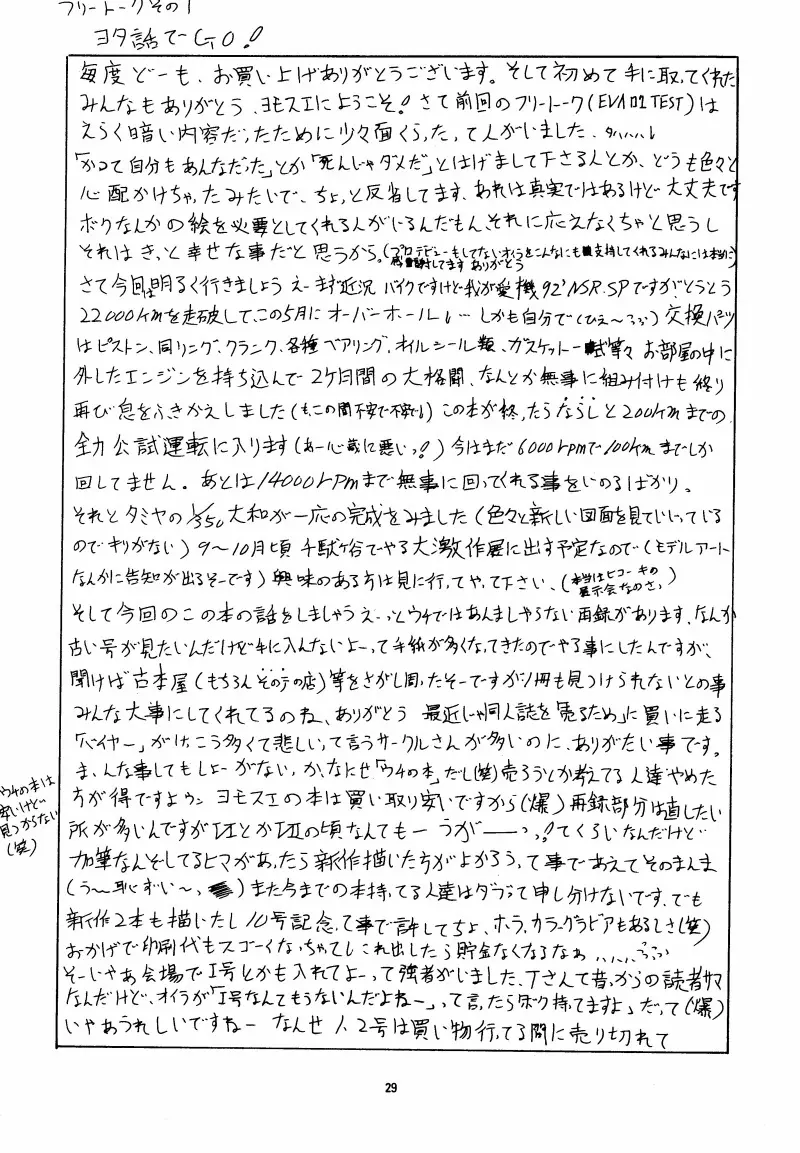 フリートークその1
ヨタ話でGO!
毎度どーも、お買い上げありがとうございます。そして初めて手に取ってくれた
みんなもありがとう、ヨモスエにようこそ!さて前回のフリートーク(EVA TEST)は
えらく暗い内容だったために少々面くらった、て人がいました、タハハハ…
「かつて自分もあんなだった」とか「死んじゃダメだ」とはげまして下さる人とか、どうも色々と
心配かけちゃったみたいで、ちょっと反省してます、あれは真実ではあるけど大丈夫です
ボクなんかの絵を必要としてくれる人がいるんだもん、それに応えなくちゃと思うし
それはきっと幸せな事だと思うから。(プロデビューもしてないオイラをこんなにも支持してくれるみんなには本当に
感謝してます ありがとう
さて今回は明るく行きましょう えーまず近況 バイクですけど我が愛機92'NSR.SPですがとうとう
22000kmを走破して、この5月にオーバーホールし… しかも自分で(ひぇ〜ふふ)交換パーツ
はピストン、同リング、クランク、各種ベアリング、オイルシール類、ガスケット一式等々 お部屋の中に
外したエンジンを持ち込んで2ケ月間の大格闘、なんとか無事に組み付けも終り
再び息をふきかえしました(もこの間不安で不安で)この本が終ったらならしと200kmまでの
全力公試運転に入ります(あー心臓に悪いっ!)今はまだ6000rpmで100kmまでしか
回してません。あとは14000rPmまで無事に回ってくれる事をいのるばかり。
それとタミヤの1/350大和が一応の完成をみました(色々と新しい図面を見ていじっている
のでキリがない)9〜10月頃千駄ヶ谷でやる大激作展に出す予定なので(モデルアート
なんかに告知が出るそーです)興味のある方は見に行ってやって下さい、(本当はヒコーキの
展示会なのさっ)
そして今回のこの本の話をしましょう えーっとウチではあんましやらない再録があります、なんか
古い号が見たいんだけど手に入んないよーって手紙が多くなってきたのでやる事にしたんですが、
聞けば古本屋(もちろんその手の店)等をさがし周ったそーですが1冊も見つけられないとの事
みんな大事にしてくれてるのね、ありがとう 最近じゃ同人誌を「売るため」に買いに走る
「バイヤー」がけっこう多くて悲しいって言うサークルさんが多いのに、ありがたい事です。
ま、んな事してもしょーがない、か、なにせ「ウチの本」だし(笑)売ろうとか考えてる人達やめた
方が得ですよゥン ヨモスエの本は買い取り安いですから(爆)再録部分は直したい
所が多いんですがⅠとかⅡの頃なんてもーうがーーっっ!てくらいなんだけど
加筆なんぞしてるヒマがあったら新作描いた方がよかろうって事であえてそのまんま
(う〜恥ずい〜っ)また今までの本持ってる人達はダブって申し分けないです、でも
新作2本も描いたし10号記念って事で許してちょ、ホラ、カラーグラビアもあるしさ(笑)
おかげで印刷代もスゴーくなっちゃてしこれ出したら貯金なくなるなぁ……ふふ
そーいやあ会場でⅠ号とかも入れてよーって強者がいました、Tさんて昔っからの読者サマ
なんだけど、オイラが「Ⅰ号なんてもうないんだよねー」って言ったら「ボク持てますよ」だって(爆)
いやあうれしいですねー なんせ1、2号は買い物行ってる間に売り切れて
ウチの本は
安いけど
見つからない
(笑)
29